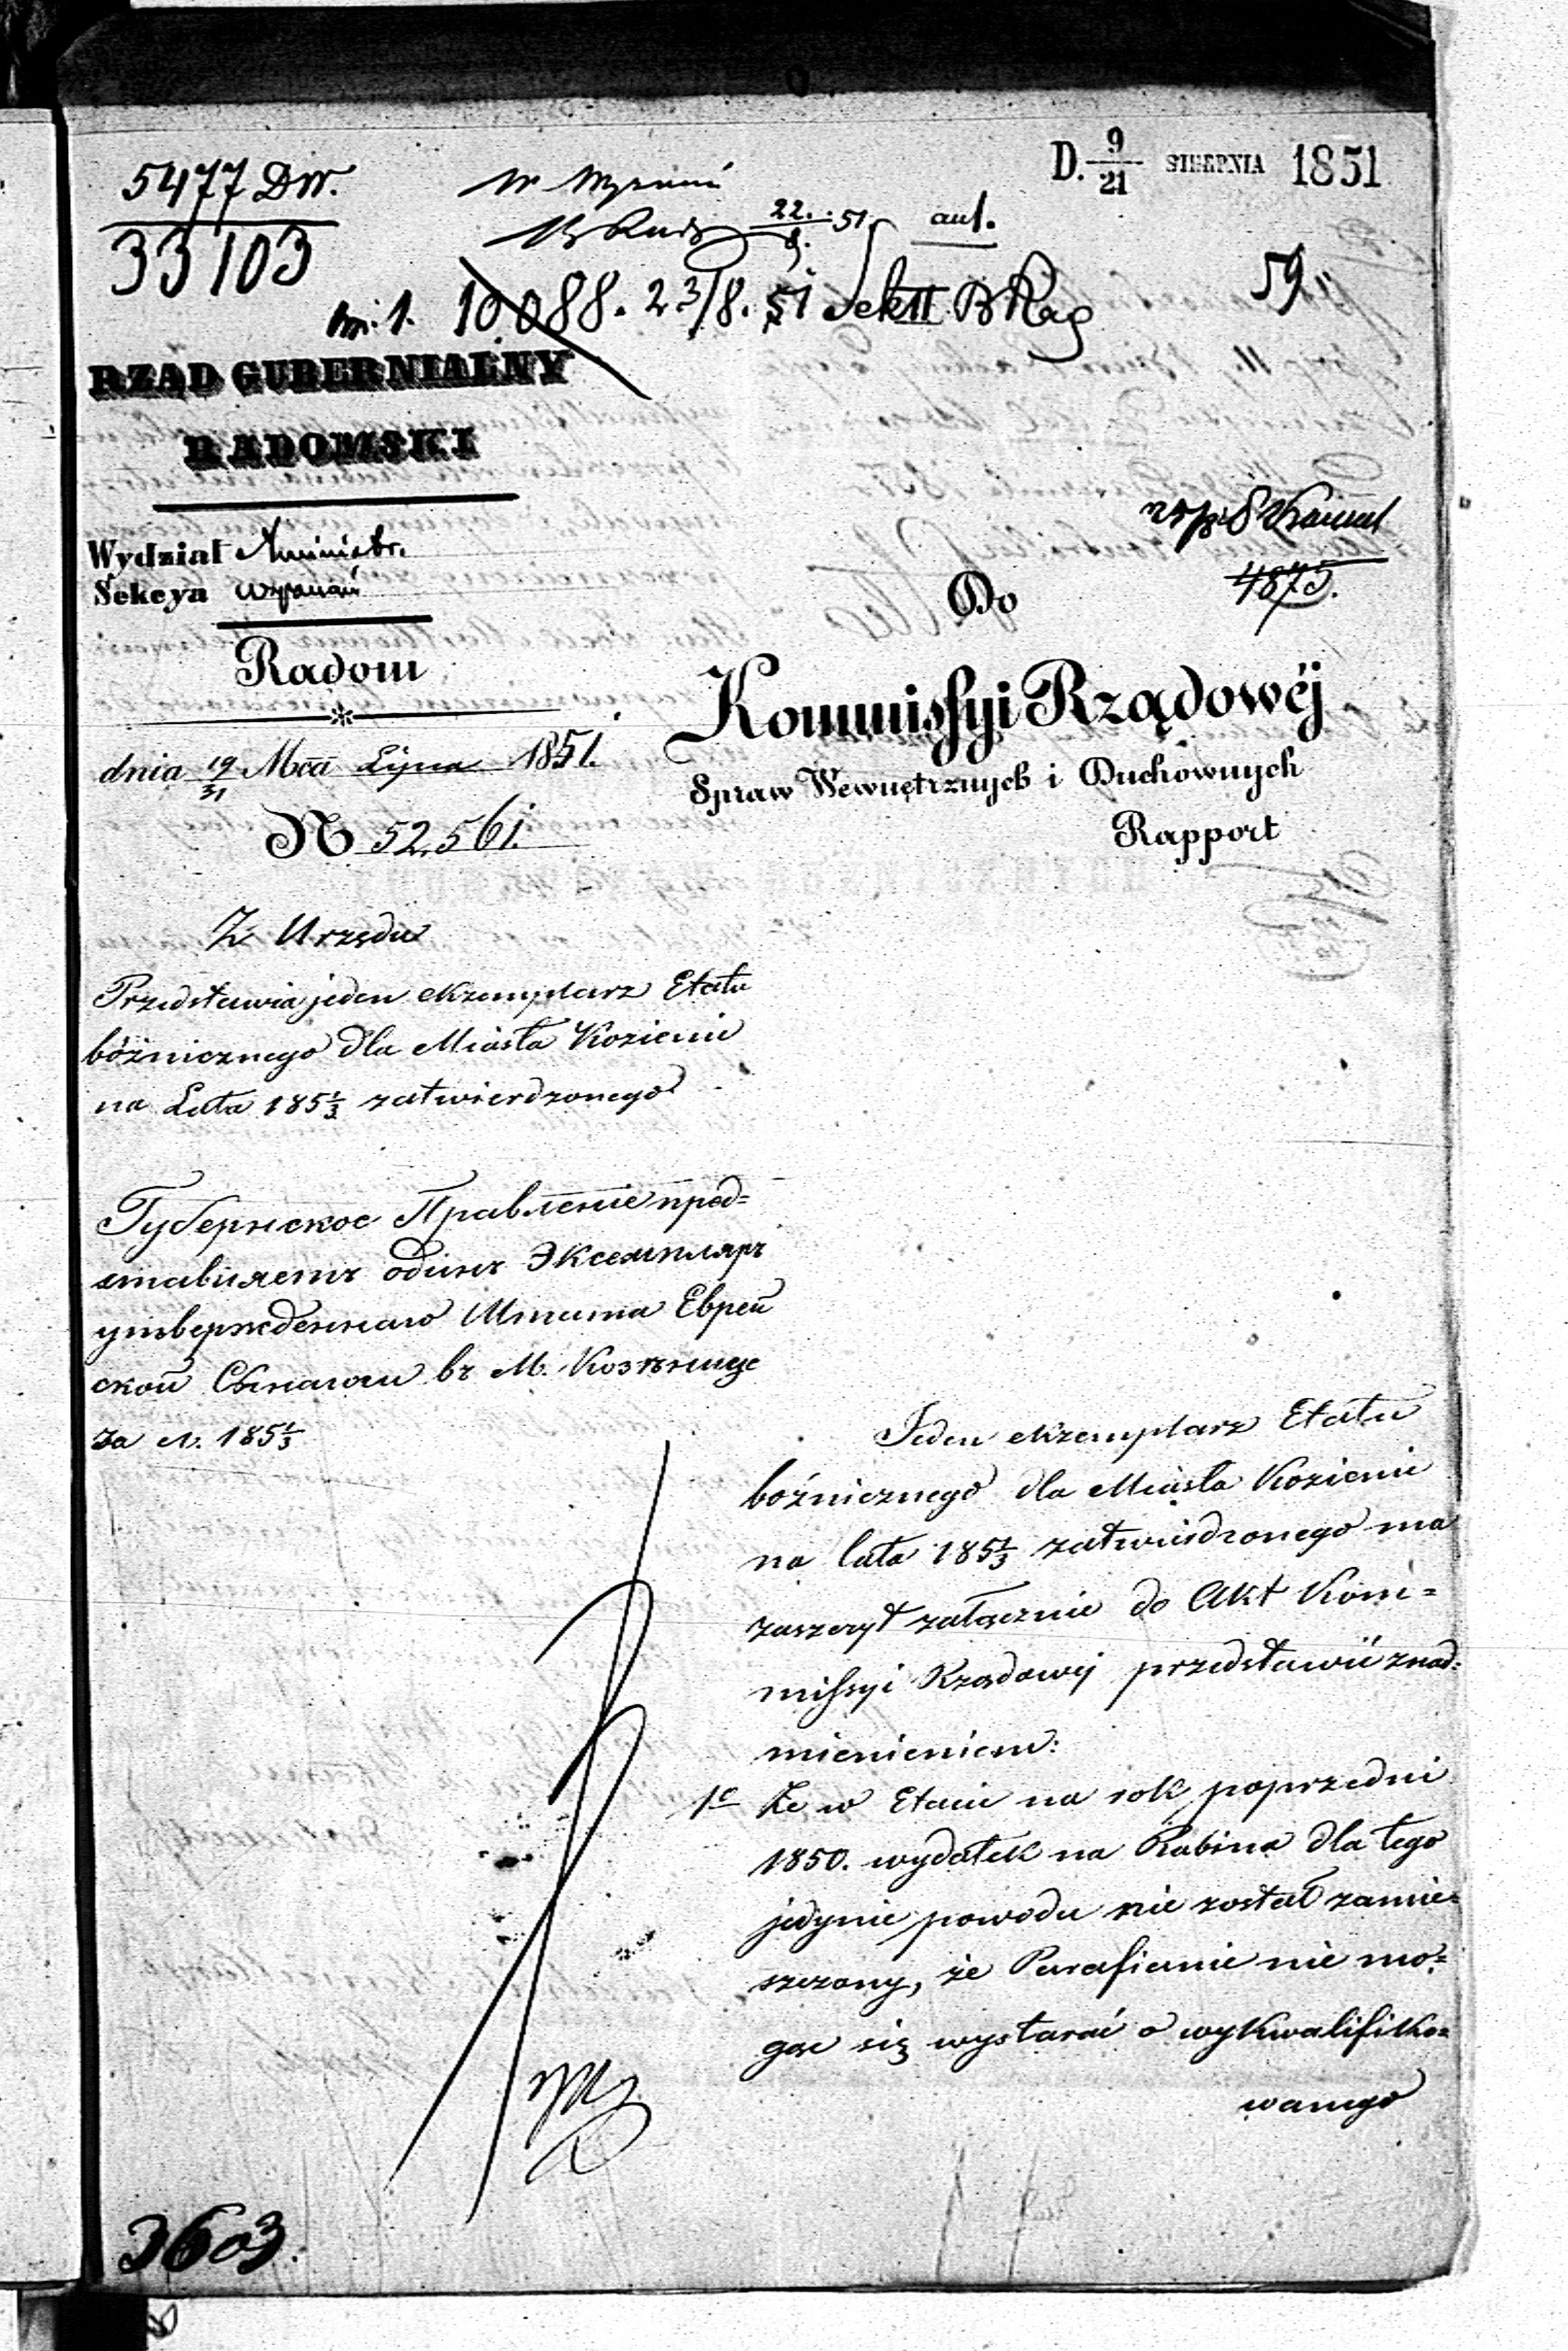 D. 9/21 SIERPNIA 1851
5477 Dw.
33103
22./8. 51
aus.
59
10088. 23/8. 51 Sek II
RZĄD GUBERNIALNY
RADOMSKI
Wydział Aministr.
Sekcya Wyznań
Radom
dnia 19/31 Mca Lipca 1851.
N 52,561.
4875.
Do
Kommissyi Rządowéj
Spraw Wewnętrznych i Duchownych
Rapport
Z Urzędu
Przedstawia jeden ekzemplarz Etatu
bóżnicznego dla Miasta Kozienic
na Lata 185 1/3 zatwierdzonego
Губернское Правление пред=
ставляетъ одинъ Экземпляръ
утвержденнаго Штата Еврей
ской Синагоги въ М. Козѣницe
за г. 185 1/3
Jeden ekzemplarz Etatu
bóźnicznego dla Miasta Kozienic
na lata 185 1/3 zatwierdzonego ma
zaszczyt załącznie do Akt Kom=
missyi Rządowej przedstawić z nad=
mienieniem:
1e Że w Etacie na rok poprzedni
1850. wydatek na Rabina dla tego
jedynie powodu nie został zamie=
szczony, że Parafianie nie mo=
gąc się wystarać o wykwalifiko=
wanego
3603.